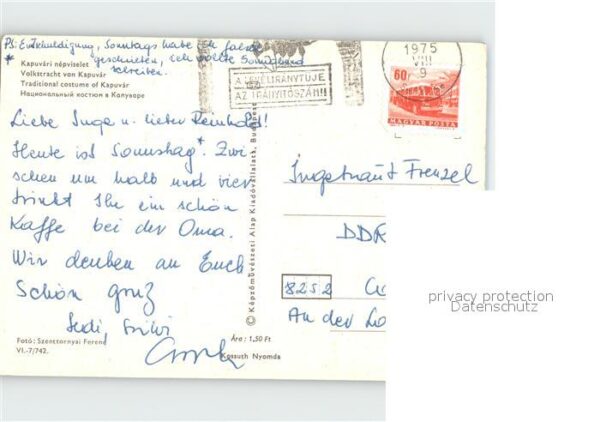 PS: Entschuldigung, Sonntags habe ich falsch
* geschrieben, ich wollte Sonnabend
schreiben.
Kapuvári népviselet
Volkstracht von Kapuvár
Traditional costume of Kapuvár
Национальный костюм в Капуваре
A LEVÉL IRÁNYTŰJE
AZ IRÁNYÍTÓSZÁM!!
1975
VIII
9
60f
MAGYAR POSTA
Liebe Inge u. lieber Reinhold!
Heute ist Sonnstag*. Zwi
schen um halb und vier
trinkt Ihr ein schön
Kaffe bei der Oma.
Wir denken an Euch
Schön gruz
Fotó: Szenttornyai Ferenc
VI.-7/742.
Ára: 1,50 Ft
Kossuth Nyomda
© Képzőművészeti Alap Kiadóvállalata, Budapest
Ingetraut Frenzel
DDR
8252
An der
privacy protection
Datenschutz